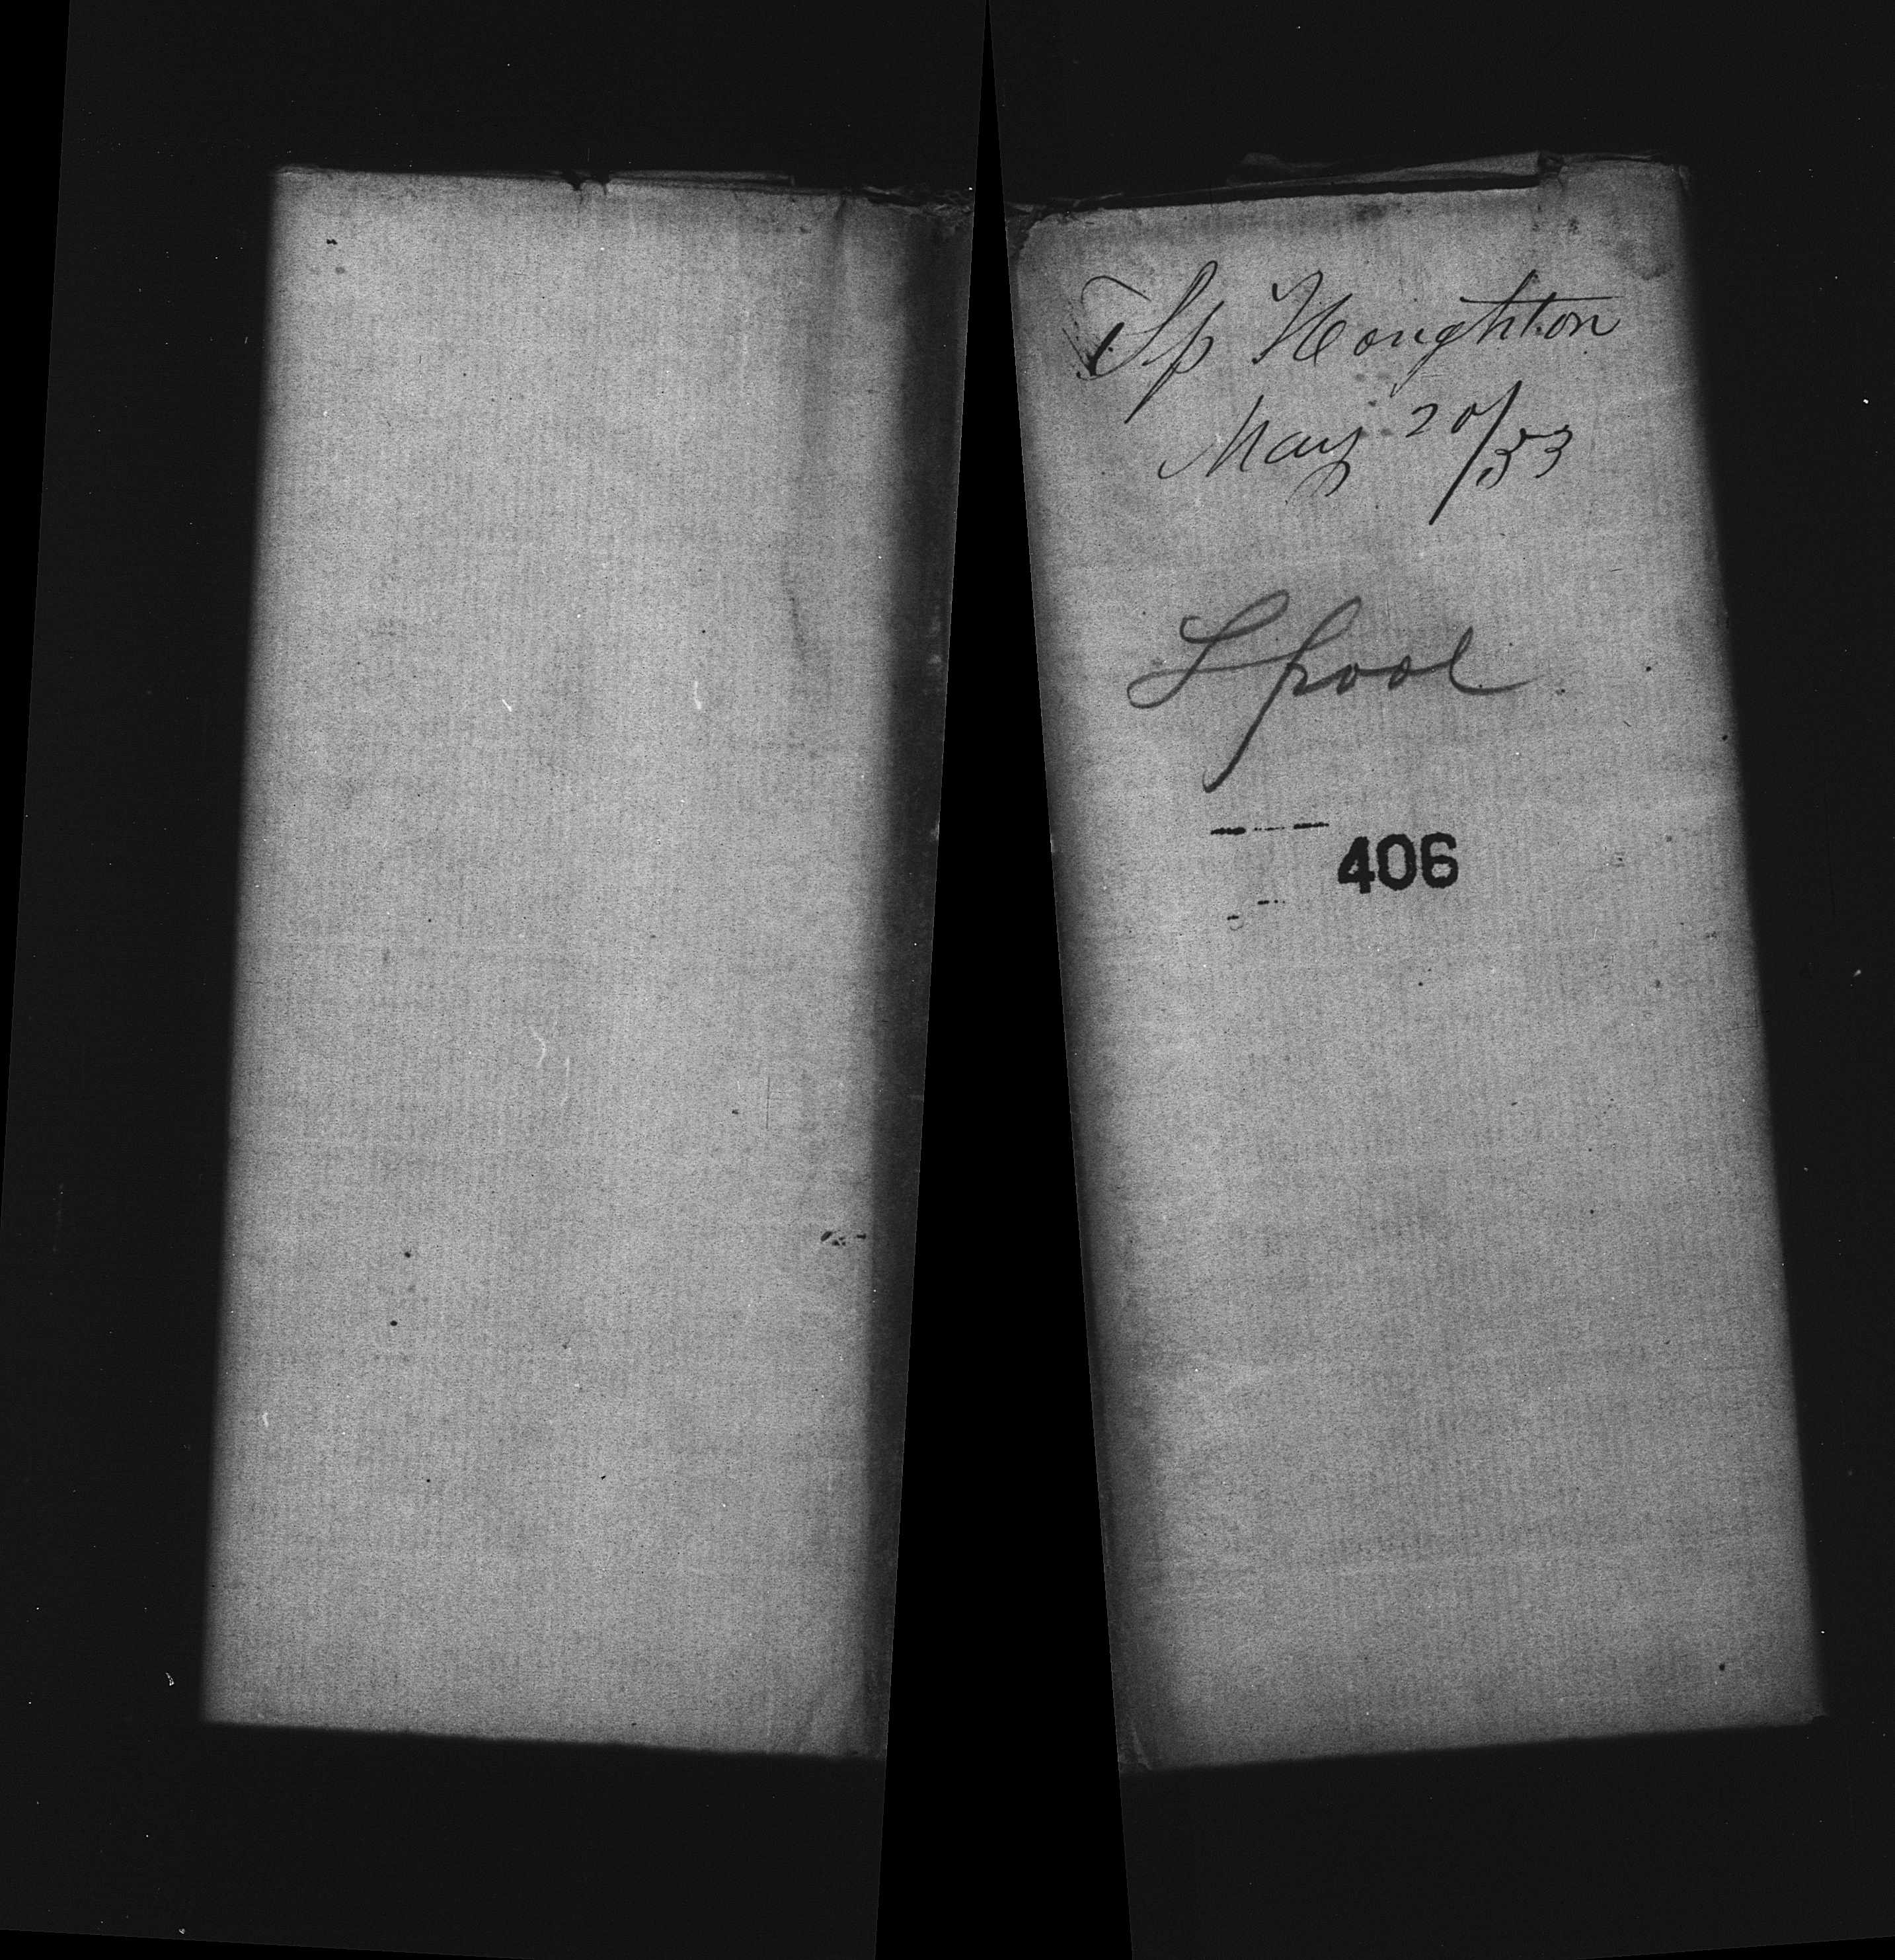 Sp Houghton
May 20/53
Lpool
406